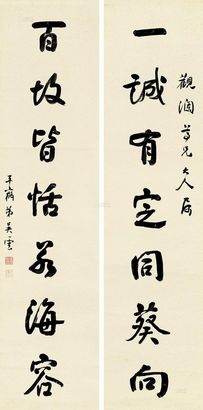 觀洄尊兄大人屬
一誠有定同葵向
百故皆恬若海容
平齋弟吳雲